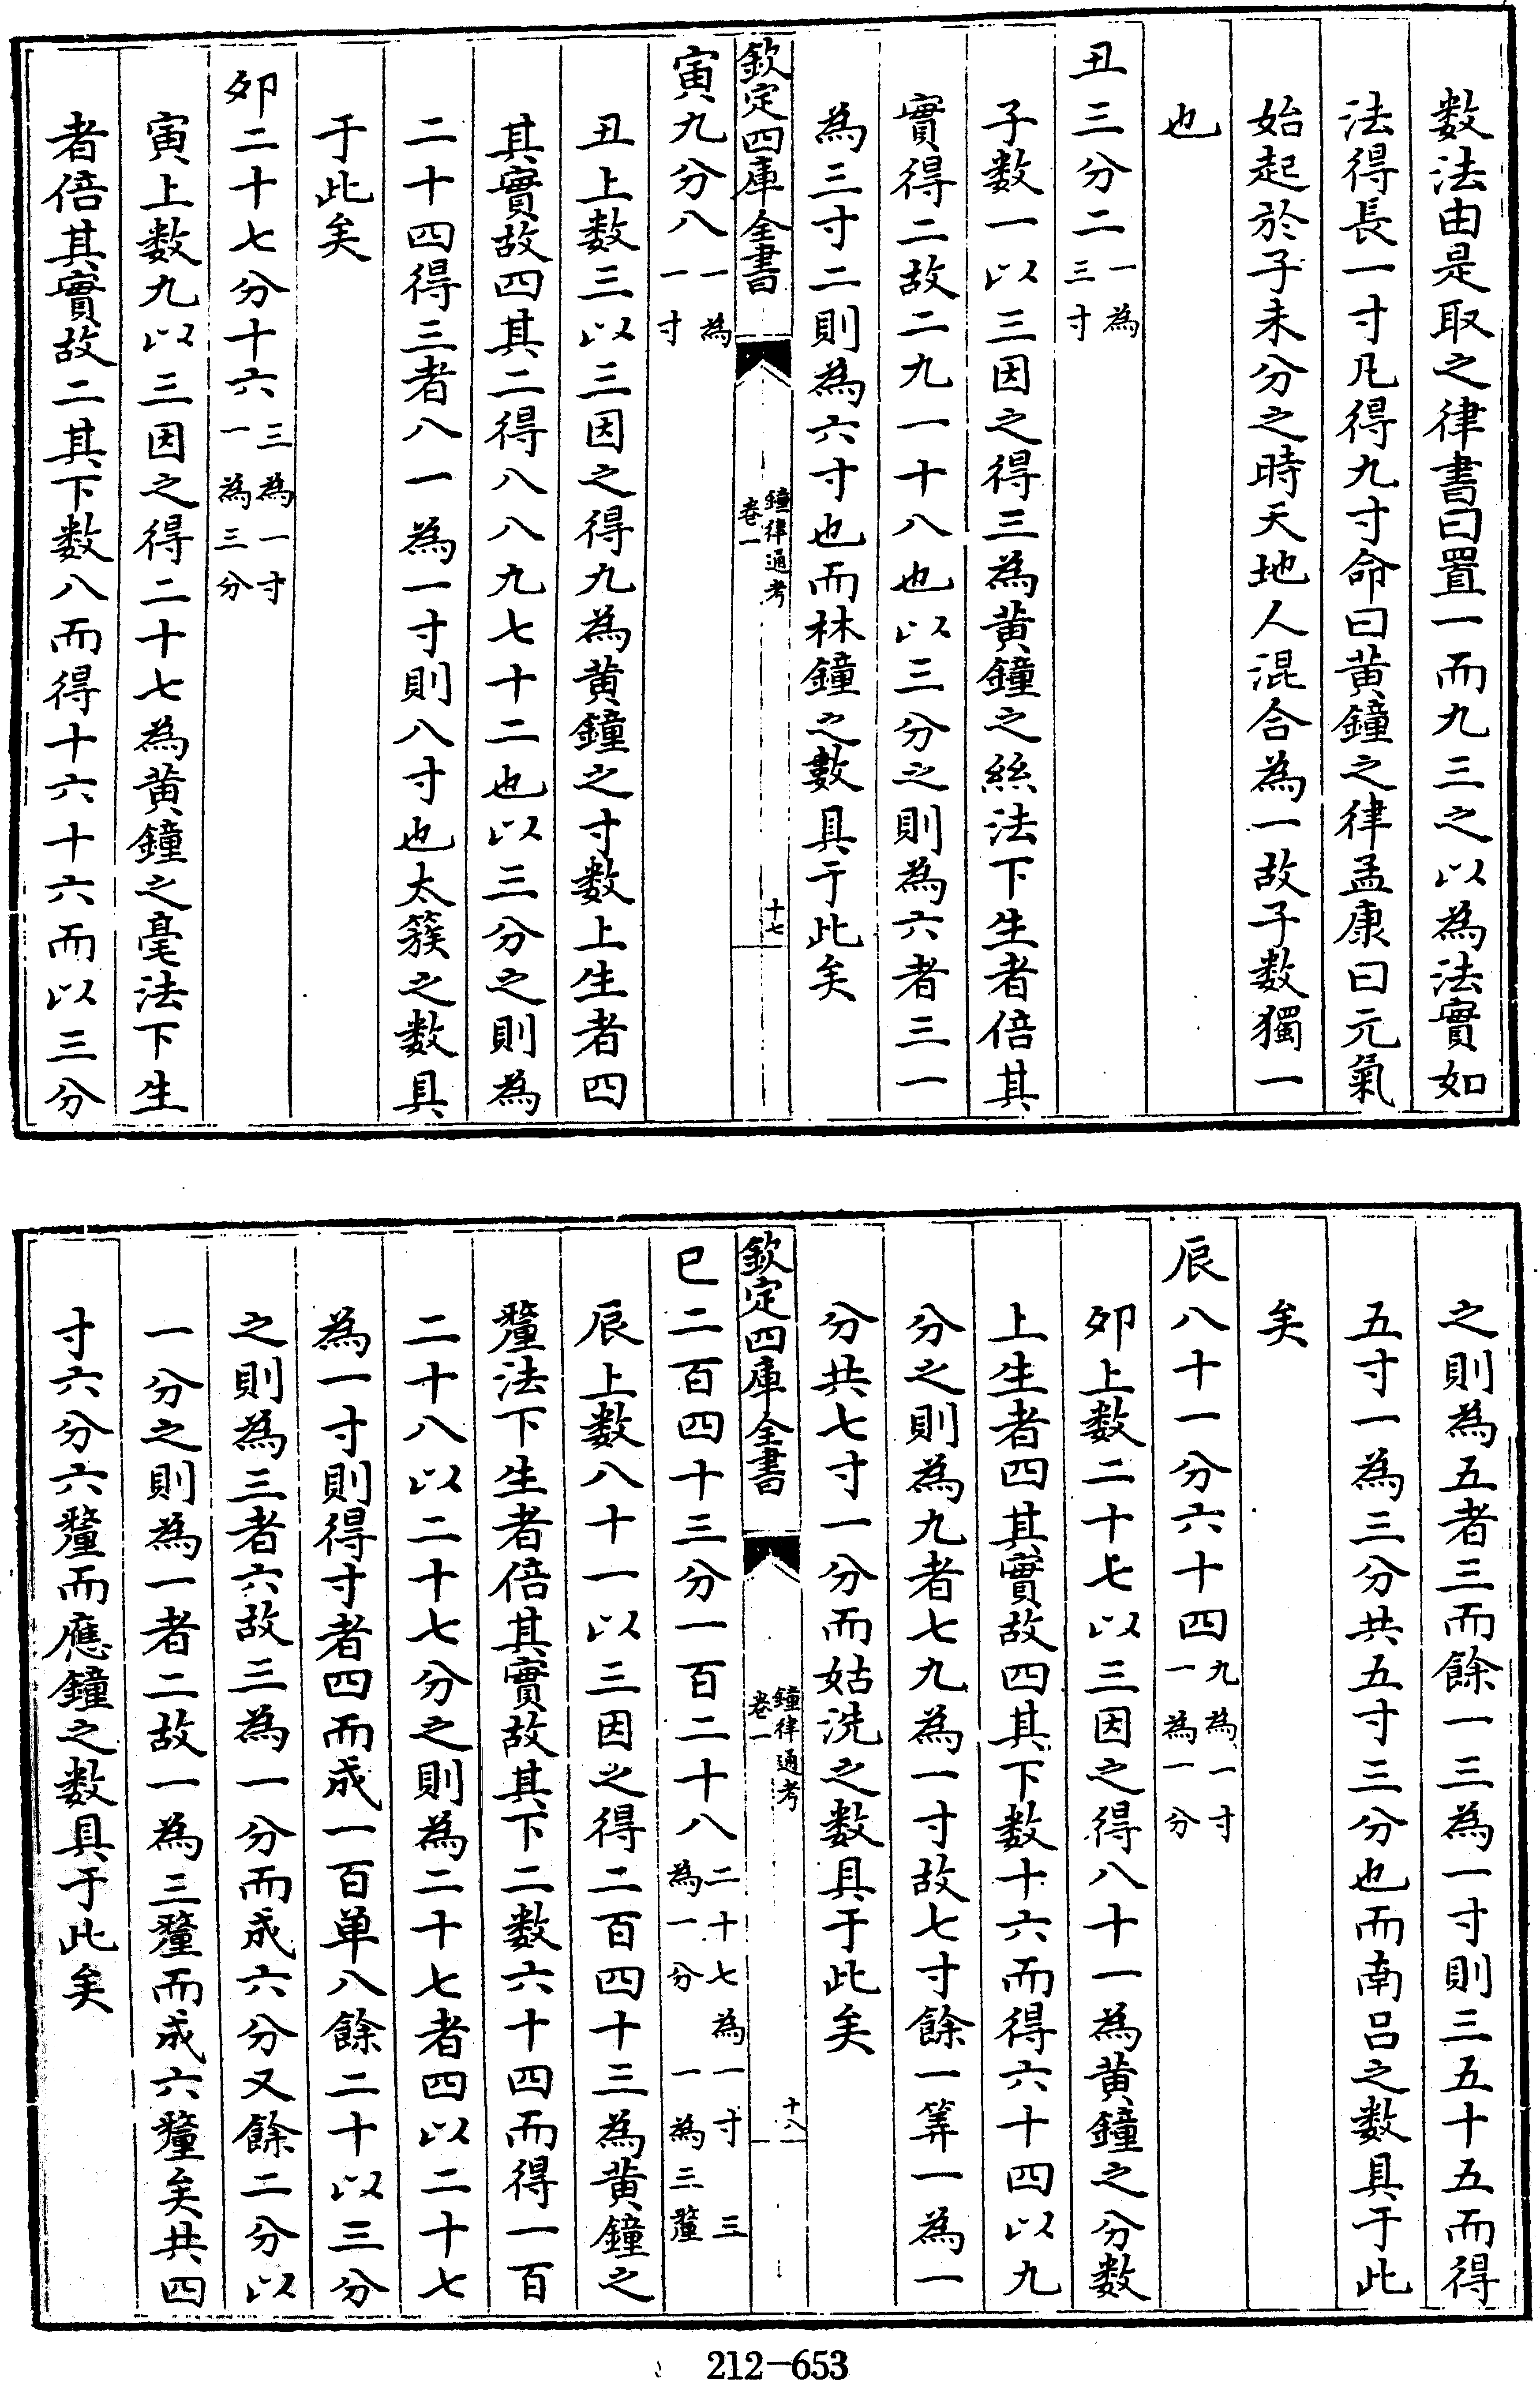 数法由是取之律書曰置一而九三之以為法實如
法得長一寸凡得九寸命曰黄鐘之律孟康曰元氣
始起於子未分之時天地人混合為一故子数獨一
也
丑三分二一為三寸
子数一以三因之得三為黄鐘之絲法下生者倍其
實得二故二九一十八也以三分之則為六者三一
為三寸二則為六寸也而林鐘之數具于此矣
欽定四庫全書
鐘律通考
卷一
十七
寅九分八一為一寸
丑上数三以三因之得九為黄鐘之寸数上生者四
其實故四其二得八八九七十二也以三分之則為
二十四得三者八一為一寸則八寸也太簇之数具
于此矣
夘二十七分十六三為一寸一為三分
寅上数九以三因之得二十七為黄鐘之毫法下生
者倍其實故二其下数八而得十六十六而以三分
之則為五者三而餘一三為一寸則三五十五而得
五寸一為三分共五寸三分也而南吕之数具于此
矣
辰八十一分六十四九為一寸一為一分
夘上数二十七以三因之得八十一為黄鐘之分数
上生者四其實故四其下数十六而得六十四以九
分之則為九者七九為一寸故七寸餘一筭一為一
分共七寸一分而姑洗之数具于此矣
欽定四庫全書
鐘律通考
卷一
十八
巳二百四十三分一百二十八二十七為一寸三為一分一為三釐
辰上数八十一以三因之得二百四十三為黄鐘之
釐法下生者倍其實故其下二数六十四而得一百
二十八以二十七分之則為二十七者四以二十七
為一寸則得寸者四而成一百单八餘二十以三分
之則為三者六故三為一分而成六分又餘二分以
一分之則為一者二故一為三釐而成六釐矣共四
寸六分六釐而應鐘之数具于此矣
212-653